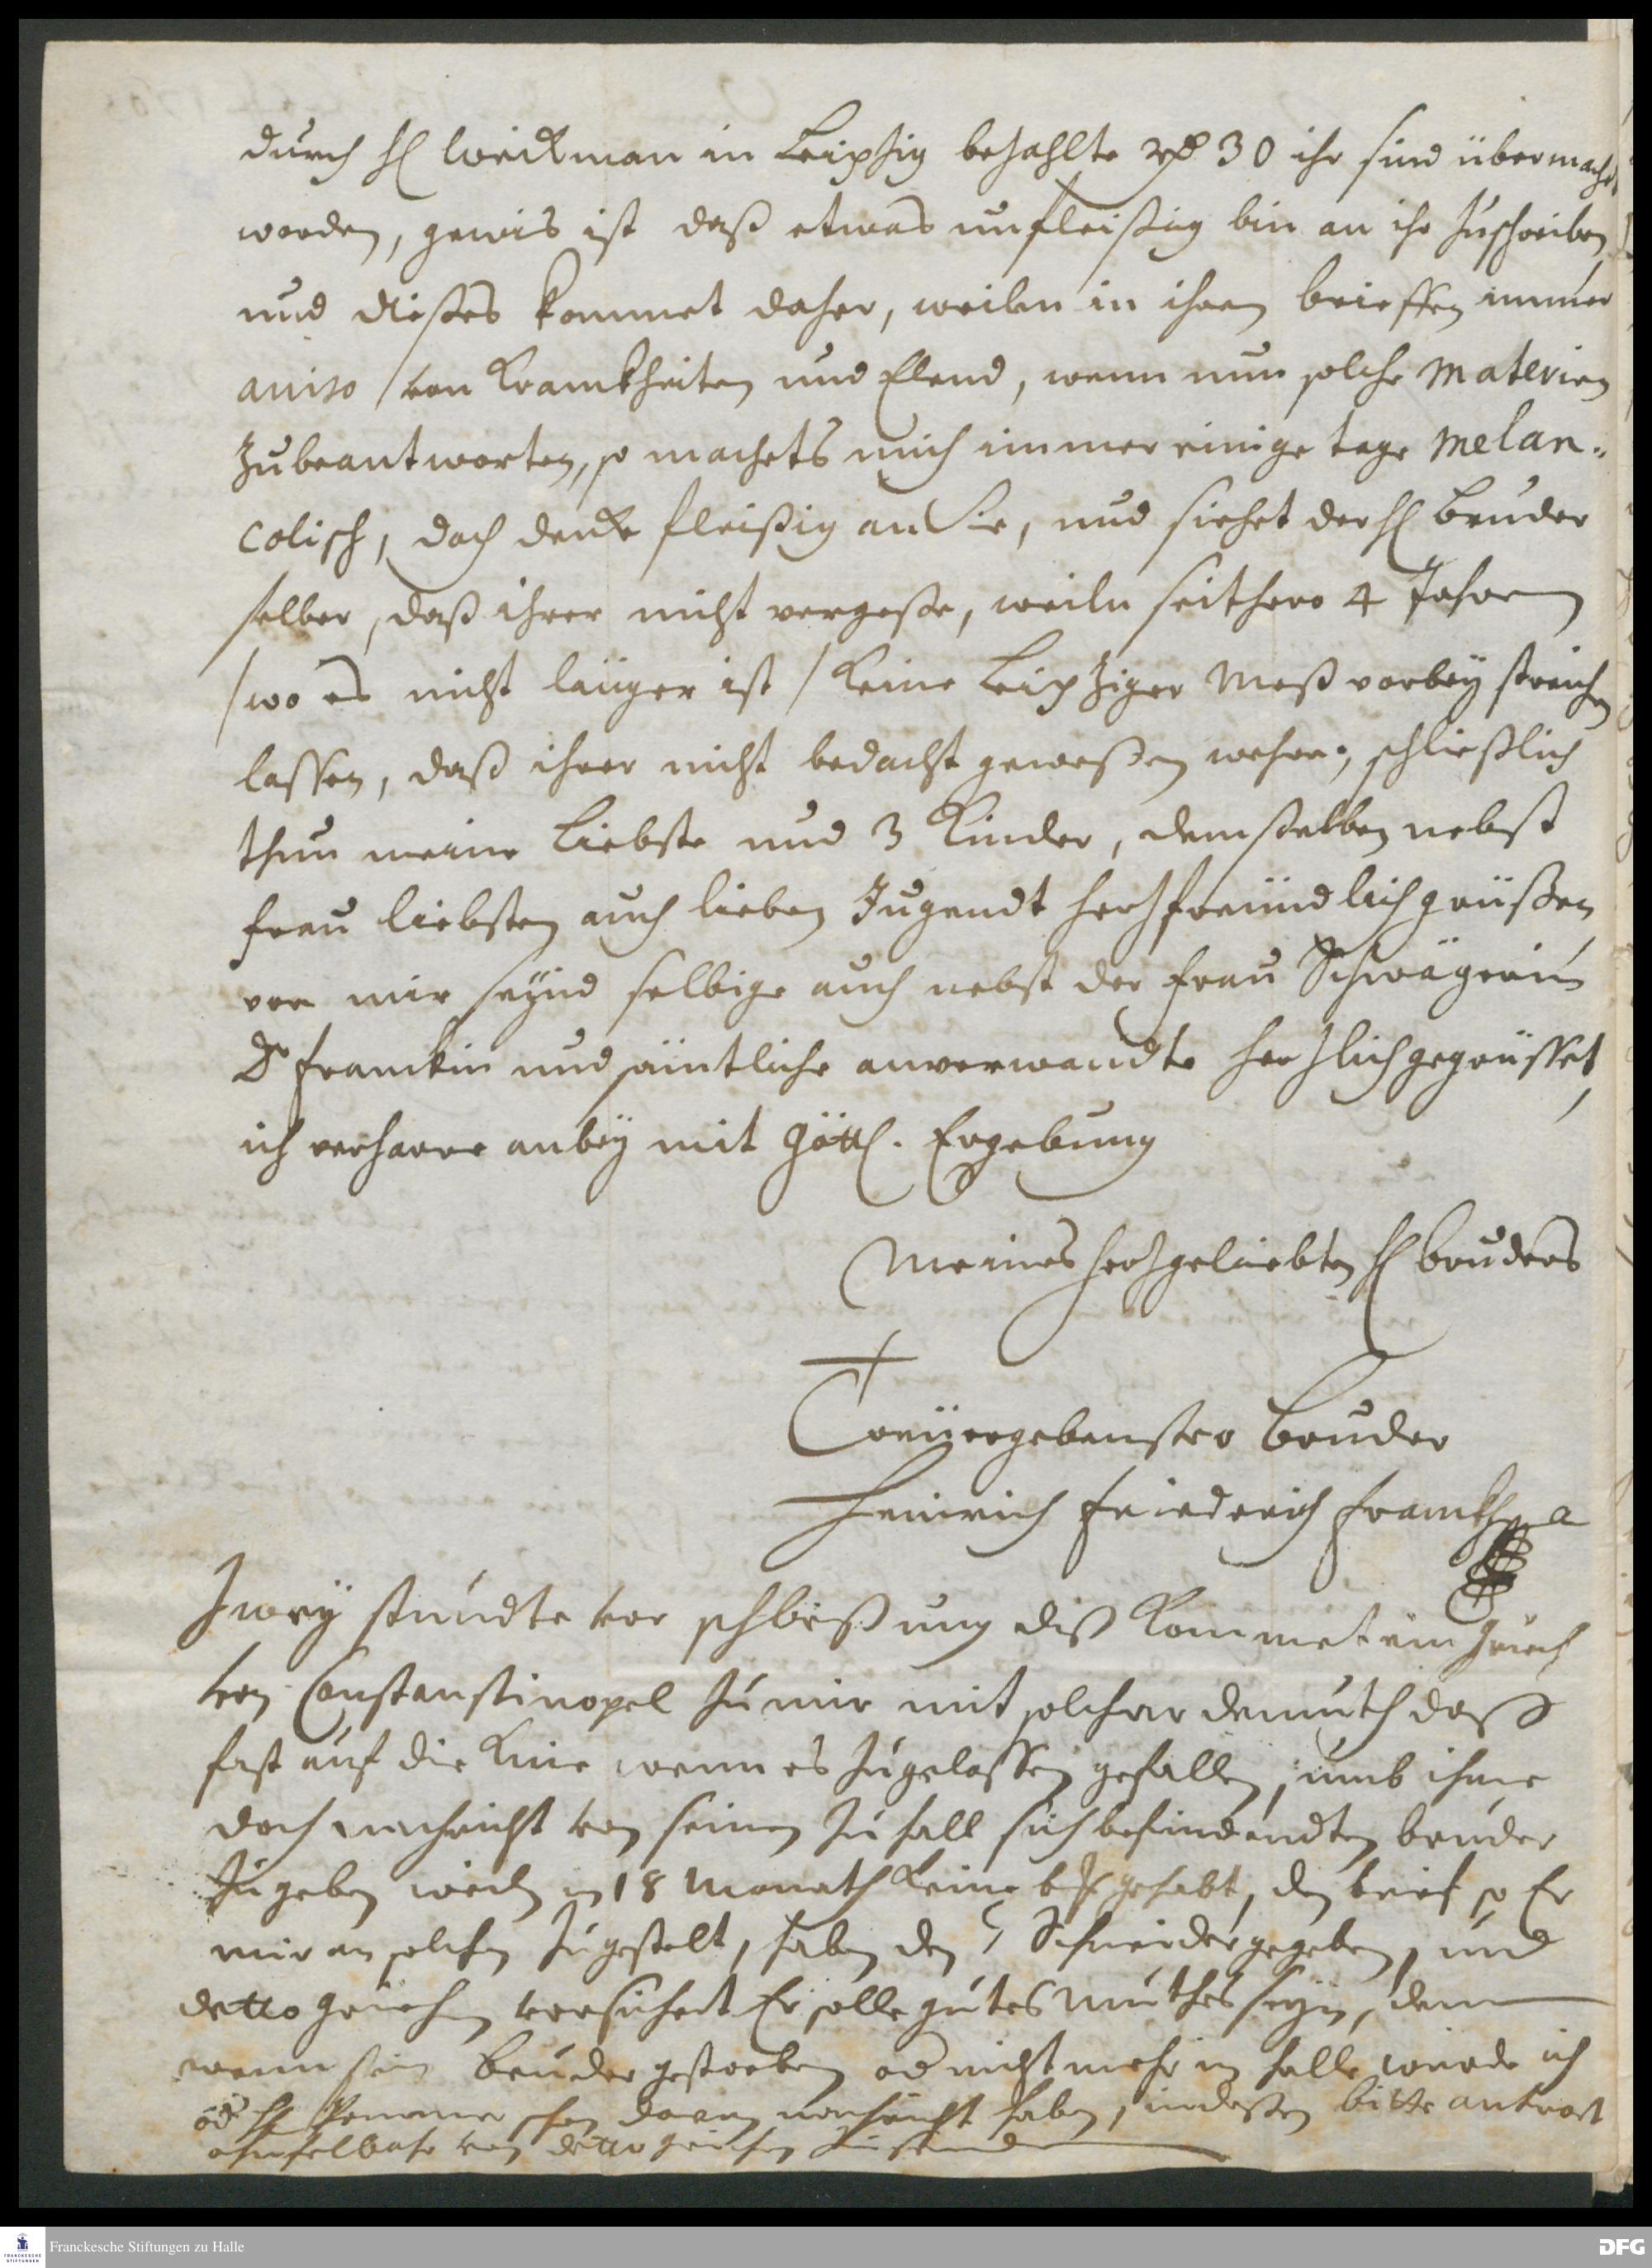 durch H Weidman in Leipzig bezahlte rth 30 ihr sind übermacht
worden, gewis ist daß etwas unfleißig bin an ihr zuschreiben
und dießes kommet daher, weilen in ihren brieffen immer
aviso von Kranckheiten und Elend, wenn nun solche Materien
zubeantworten, so machets mich immer einige tage Melan-
colisch, doch dencke fleißig an Sie, und siehet der H Bruder
selber, daß ihrer nicht vergeße, weiln seithero 4 Jahren
/wo es nicht länger ist / keine Leipziger Meß vorbey streichen
lassen, daß ihrer nicht bedacht geweßen wehre, schließlich
thun meine Liebste und 3 Kinder, demselben nebst
frau liebsten auch lieben Jugendt herzfreündlich grüßen
von mir seynd selbige auch nebst der frau Schwägerin
D franckin und sämtliche anverwandte herzlich gegrüsset,
ich verharre anbey mit göttl. Ergebung
Meines herzgeliebten H bruders
Treüergebenster Bruder
Heinrich Friedrich Franckh
Zwey stundte vor schließung diß kommet ein Griech
von Constantinopel zu mir mit solcher demuth daß
fast auf die Knie wenn es zugelassen gefallen, umb ihme
doch nachricht von seinen zu Hall sich befindendten bruder
zugeben weiln in 18 Monath keine gehabt, den brief so Er
mir an solchen zugestelt, haben den Schneider gegeben, und
detto Griechen versichert Er solle gutes Muthes seyn, denn
wenn sein Bruder gestorben od nicht mehr in Halle würde ich
od H schon davon nachricht haben, indeßen bitte antwort
ohnfelbahr von detto Griechen
Franckesche Stiftungen zu Halle
DFG